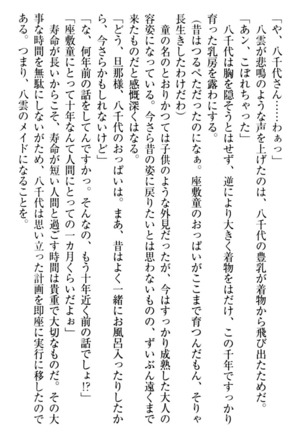 「や、八千代さん……わぁっ」
八雲が悲鳴のような声を上げたのは、八千代の豊乳が着物から飛び出たためだ。
「あん、こぼれちゃった」
八千代は胸を隠そうとはせず、逆により大きく着物をはだけ、この千年ですっかり
育った乳房を露わにする。
（昔はつるぺただったのになぁ。座敷童のおっぱいがここまで育つんだもん、そりゃ
長生きしたわけだわ）
童の名のとおりかつては子供のような外見だったが、今はすっかり成熟した大人の
容姿になっている。今さら昔の姿に戻りたいとは思わないものの、ずいぶん遠くまで
来たものだと感慨深くはなる。
「どう、旦那様、八千代のおっぱいは。まあ、昔はよく一緒にお風呂入ったりしたか
ら、今さらかもしれないけど」
「な、何年前の話をしてんですかっ。そんなの、もう十年近く前の話でしょ!?」
「座敷童にとって十年なんて人間にとっての一カ月くらいだよぉ」
寿命が長いからこそ、寿命が短い人間と過ごす時間は貴重で大切なものだ。その大
事な時間を無駄にしないがため、八千代は思い立った計画を即座に実行に移したので
ある。つまり、八雲のメイドになることを。